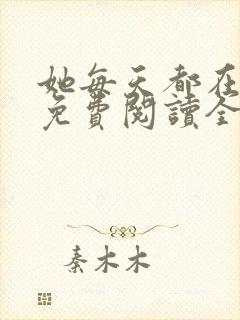 她每天都在
免費閱讀全
秦木木